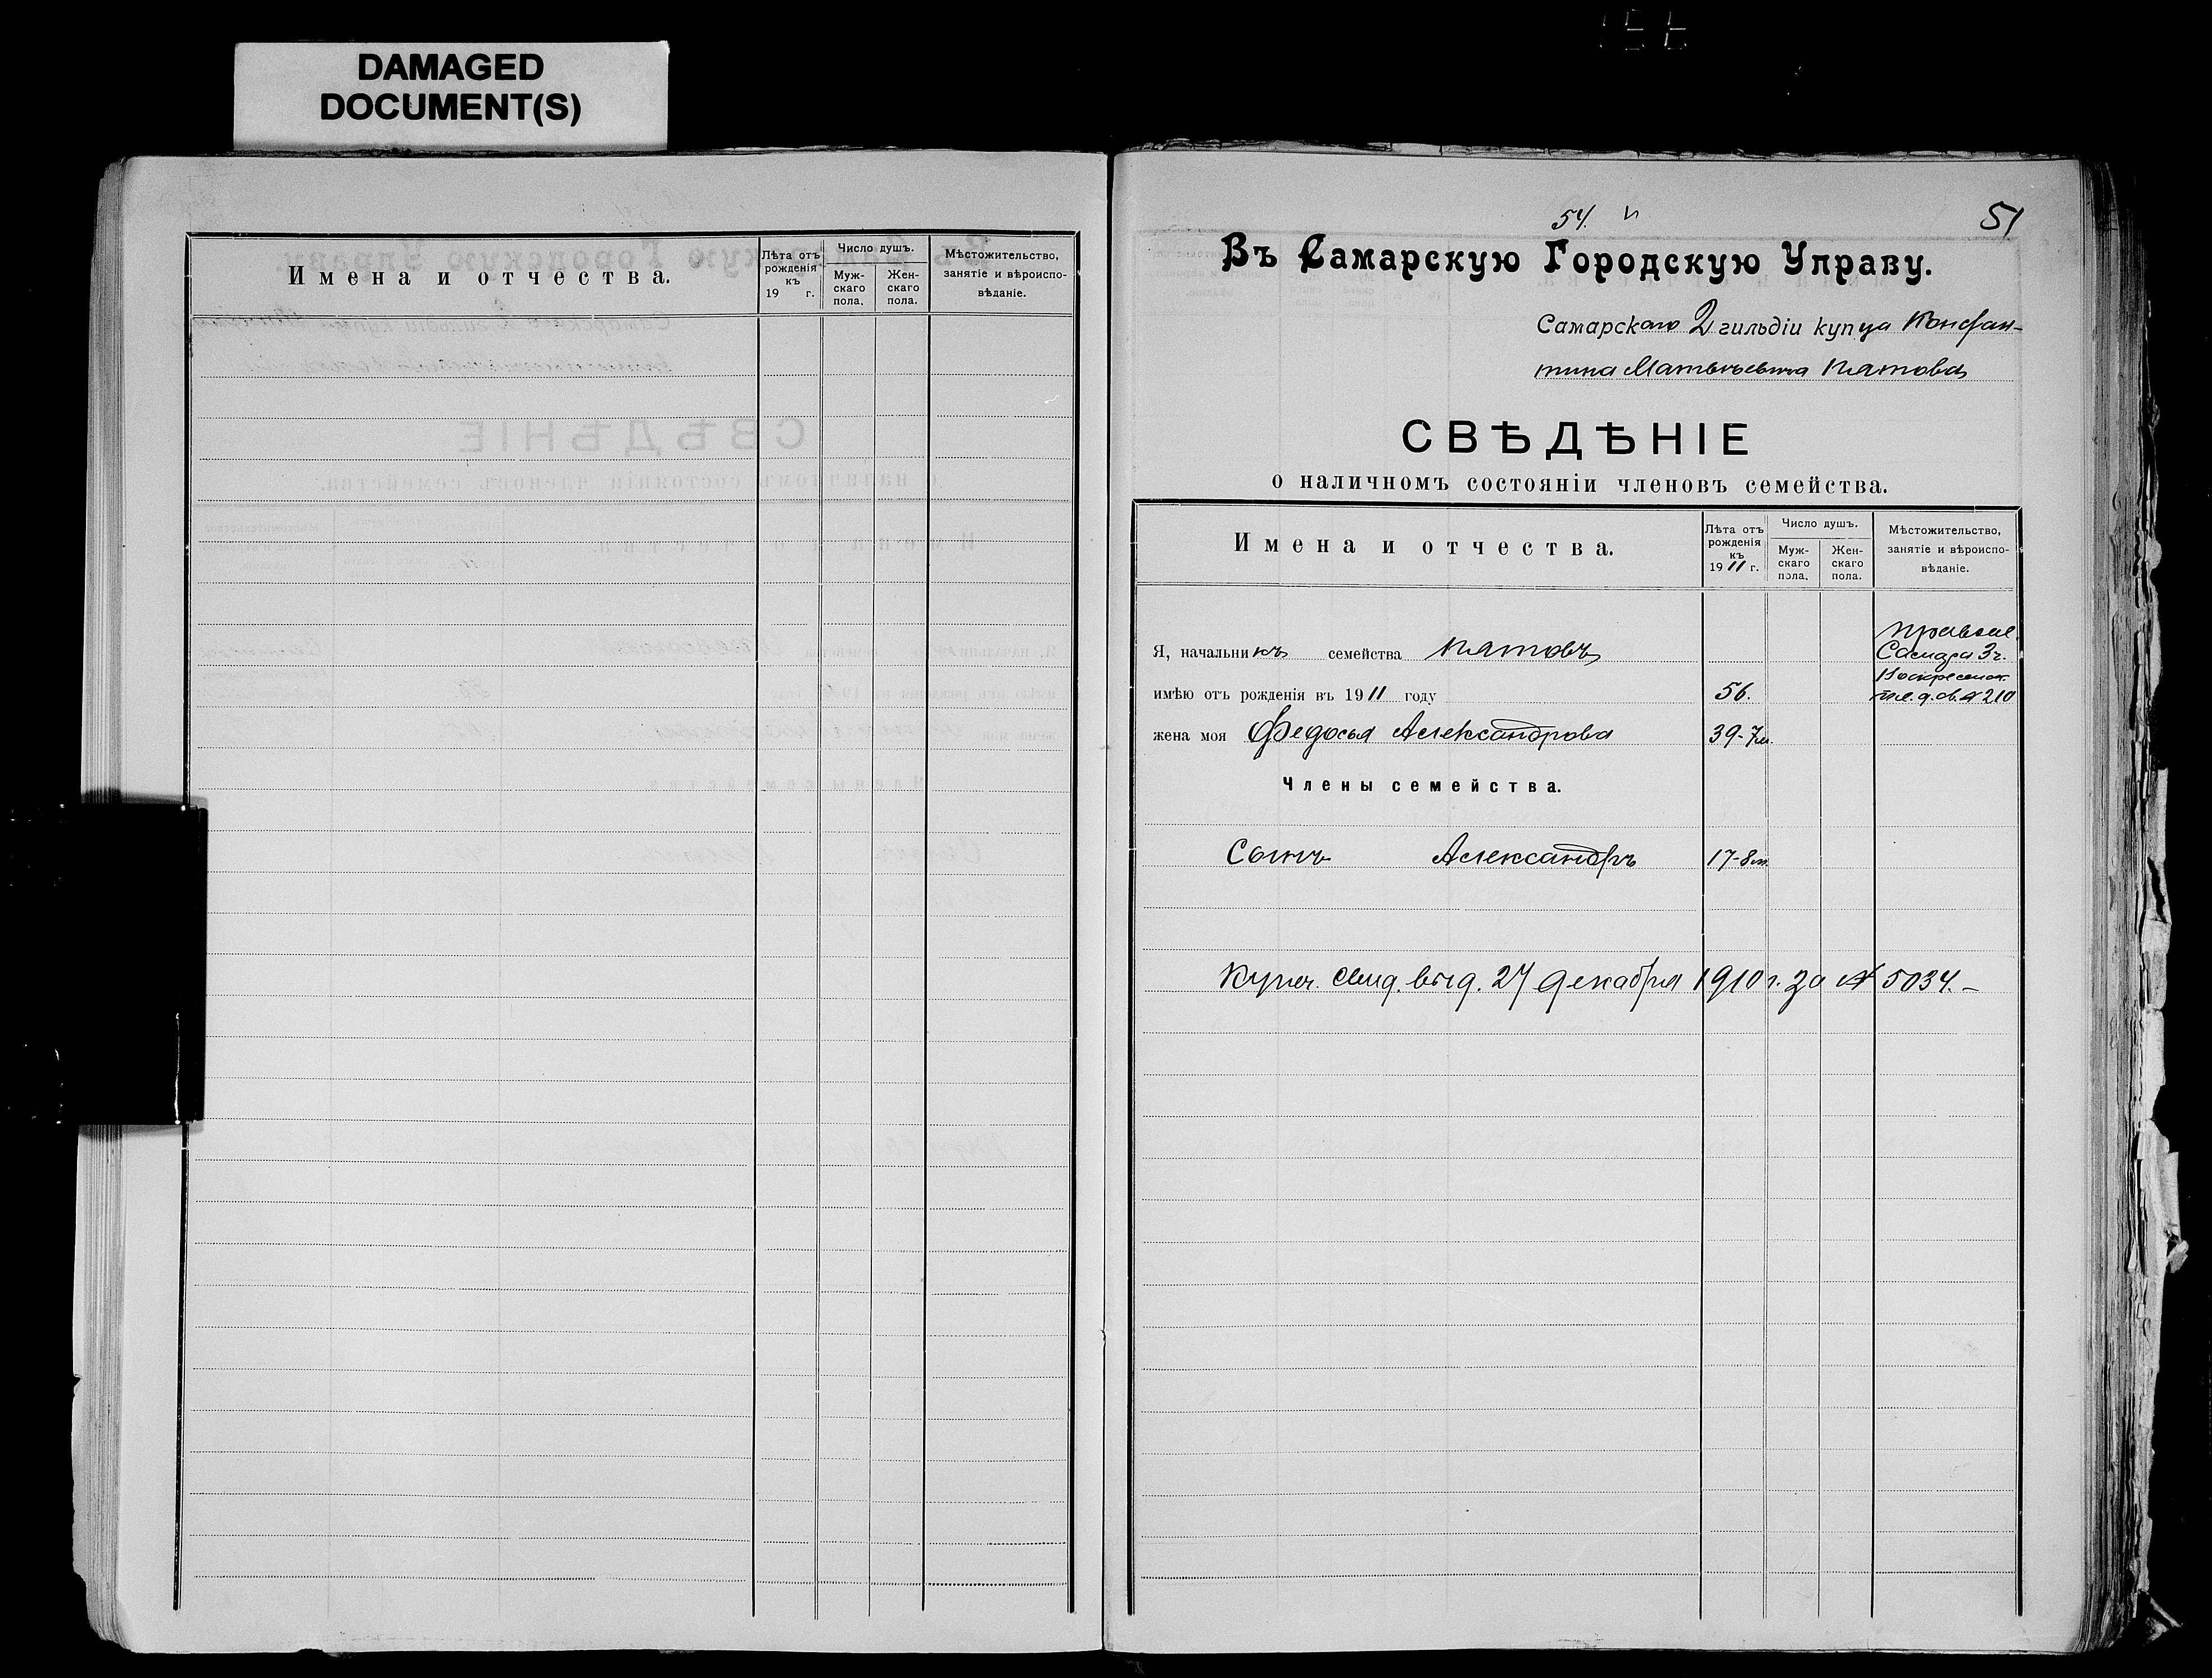 DAMAGED
DOCUMENT(S)
Имена и отчества.
Лѣта отъ рожденія къ 19 г.
Число душъ.
Муж-скаго пола.
Жен-скаго пола.
Мѣстожительство, занятіе и вѣроиспо-вѣданіе.
54.
51
Въ Самарскую Городскую Управу.
Самарскаго 2 гильдіи купца Констан-
тина Матвѣевича Пятова
СВѢДѢНІЕ
о наличномъ состояніи членовъ семейства.
Имена и отчества.
Лѣта отъ рожденія къ 1911 г.
Число душъ.
Муж-скаго пола.
Жен-скаго пола.
Мѣстожительство, занятіе и вѣроиспо-вѣданіе.
Я, начальникъ семейства Пятовъ
правосл.
Самара 3 ч.
Воскресенск.
имѣю отъ рожденія въ 1911 году 56.
д. № 210
жена моя Федосья Александрова 39-7м.
Члены семейства.
Сынъ Александръ 17-8м.
Купеч. свид. выд. 27 декабря 1910 г. за № 5034.-